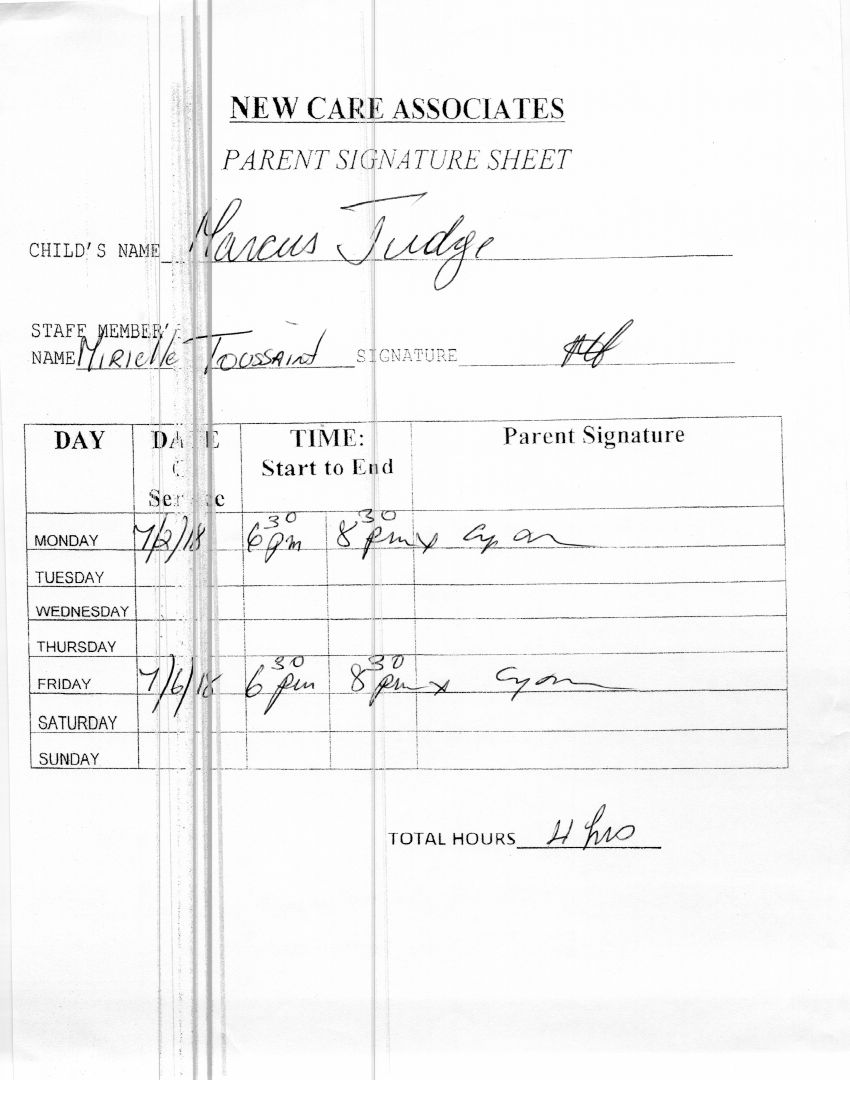 NEW CARE ASSOCIATES
PARENT SIGNATURE SHEET
CHILD'S NAME Marcus Judge
STAFF MEMBER'S
NAME Mirielle Toussaint SIGNATURE
DAY DATE TIME: Parent Signature
Start to End
Service
MONDAY 7/2/18 6 30 pm 8 30 pm x
TUESDAY
WEDNESDAY
THURSDAY
FRIDAY 7/6/18 6 30 pm 8 30 pm x
SATURDAY
SUNDAY
TOTAL HOURS 4 hrs